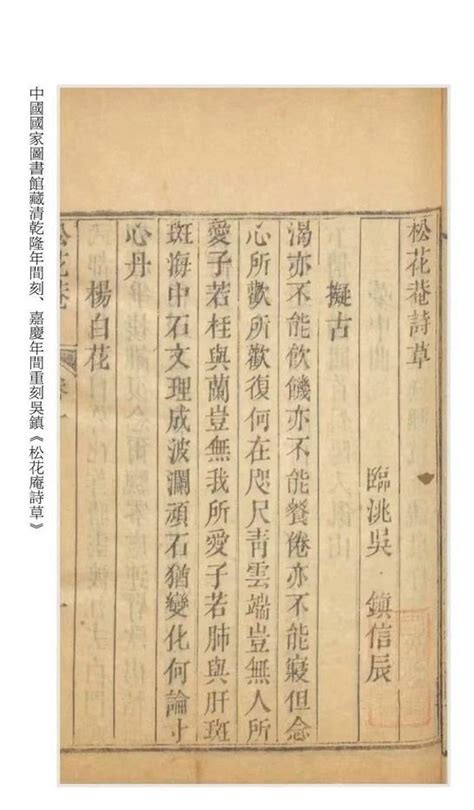 松花菴詩草
臨洮吳 鎮信辰
擬古
渴亦不能飲饑亦不能餐倦亦不能寢但念
心所歡所歡復何在咫尺靑雲端豈無人所
愛子若枉與蘭豈無我所愛子若肺與肝斑
斑海中石文理成波瀾頑石猶變化何論寸
心丹
楊白花
松花菴
中國國家圖書館藏清乾隆年間刻、嘉慶年間重刻吳鎮《松花庵詩草》